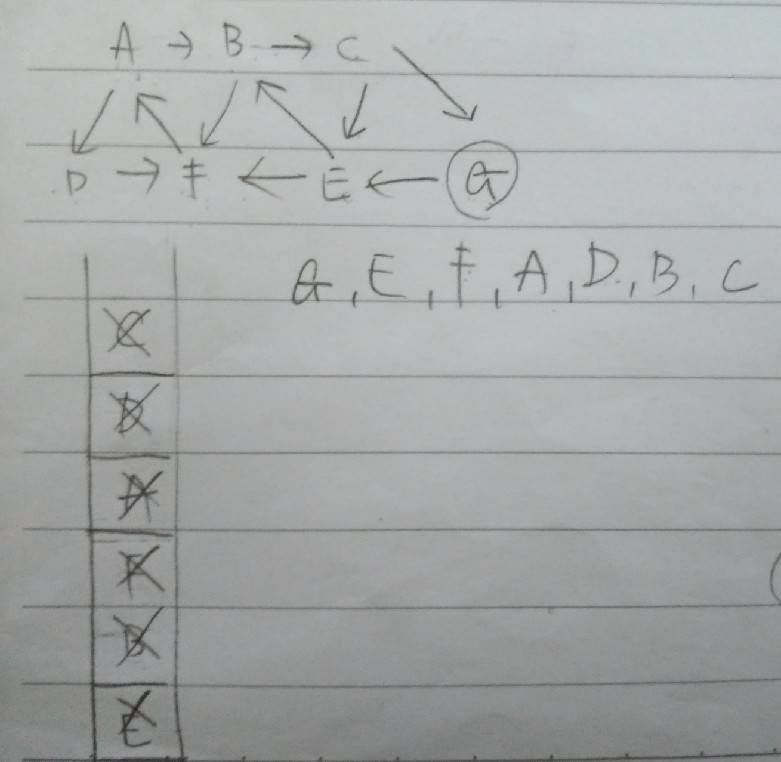 A → B → C
D → F ← E ← G
G, E, F, A, D, B, C
C
D
A
F
B
E